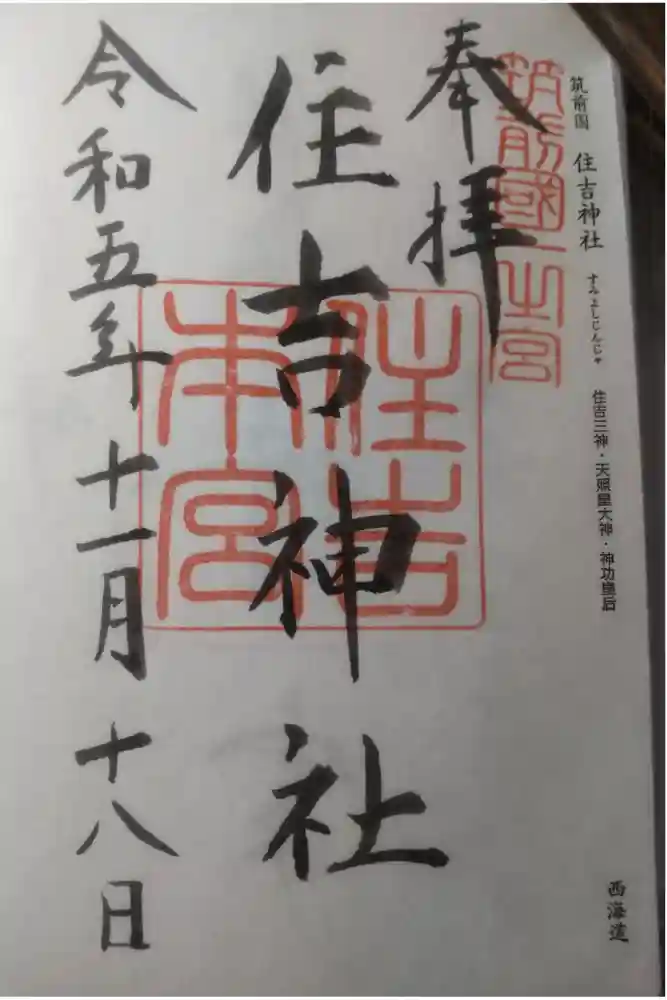 筑前国 住吉神社 すみよしじんじゃ 住吉三神・天照皇大神・神功皇后
西海道
筑前國一之宮
奉拝
住吉神社
住吉
本宮
令和五年十一月十八日